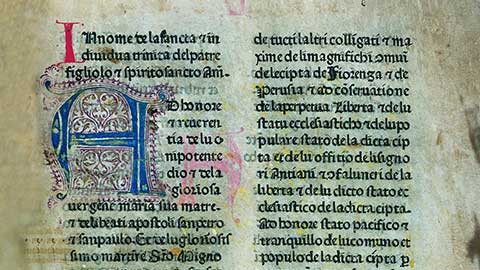 In nome de la sancta & in
dividua trinita del patre
figliolo & spirito sancto Am̄.
AD honore
& reveren
tia de lo
nipotente
dio & de la
gloriosa
vergene maria sua matre.
& de li beati apostoli san petro
& san paulo. Et de lu gloriosis
simo martire Sto
de tucti l altri colligati & ma
xime de li magnifichi comūi
de le cipta de Fiorenza & de
Perusia & ad conservatione
de la perpetua liberta & de lu
statu ecclesiasticho & de lu po
pulare stato de la dicta cip
ta & de lu offitio de li signo
ri Antiani & de la
liberta & de lu dicto stato ec
clesiastico de la dicta cipta.
Ad honore stato pacifico &
tranquillo de lu comuno &
populo de la dicta cipta p